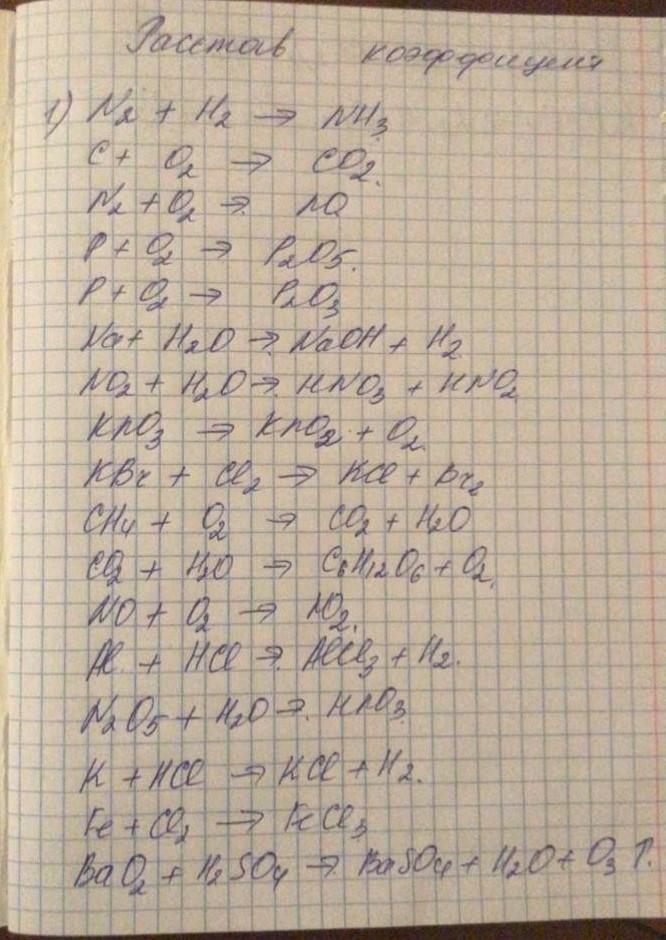 Расстав коэффициент
1) N₂ + H₂ → NH₃
C + O₂ → CO₂.
N₂ + O₂ → NO
P + O₂ → P₂O₅.
P + O₂ → P₂O₃
Na + H₂O → NaOH + H₂
NO₂ + H₂O → HNO₃ + HNO₂
KNO₃ → KNO₂ + O₂
KBr + Cl₂ → KCl + Br₂
CH₄ + O₂ → CO₂ + H₂O
CO₂ + H₂O → C₆H₁₂O₆ + O₂.
NO + O₂ → NO₂.
Al + HCl → AlCl₃ + H₂.
N₂O₅ + H₂O → HNO₃
K + HCl → KCl + H₂.
Fe + Cl₂ → FeCl₃
BaO₂ + H₂SO₄ → BaSO₄ + H₂O + O₃ ↑.